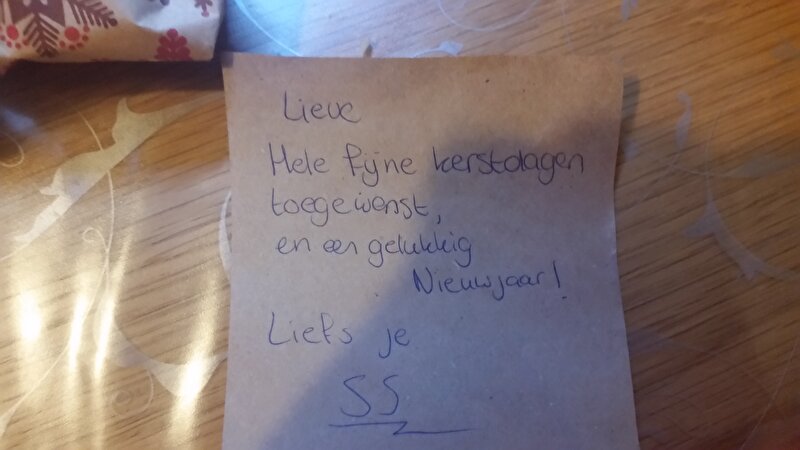 Lieve
Hele fijne kerstdagen
toegewenst,
en een gelukkig
Nieuwjaar!
Liefs je
SS